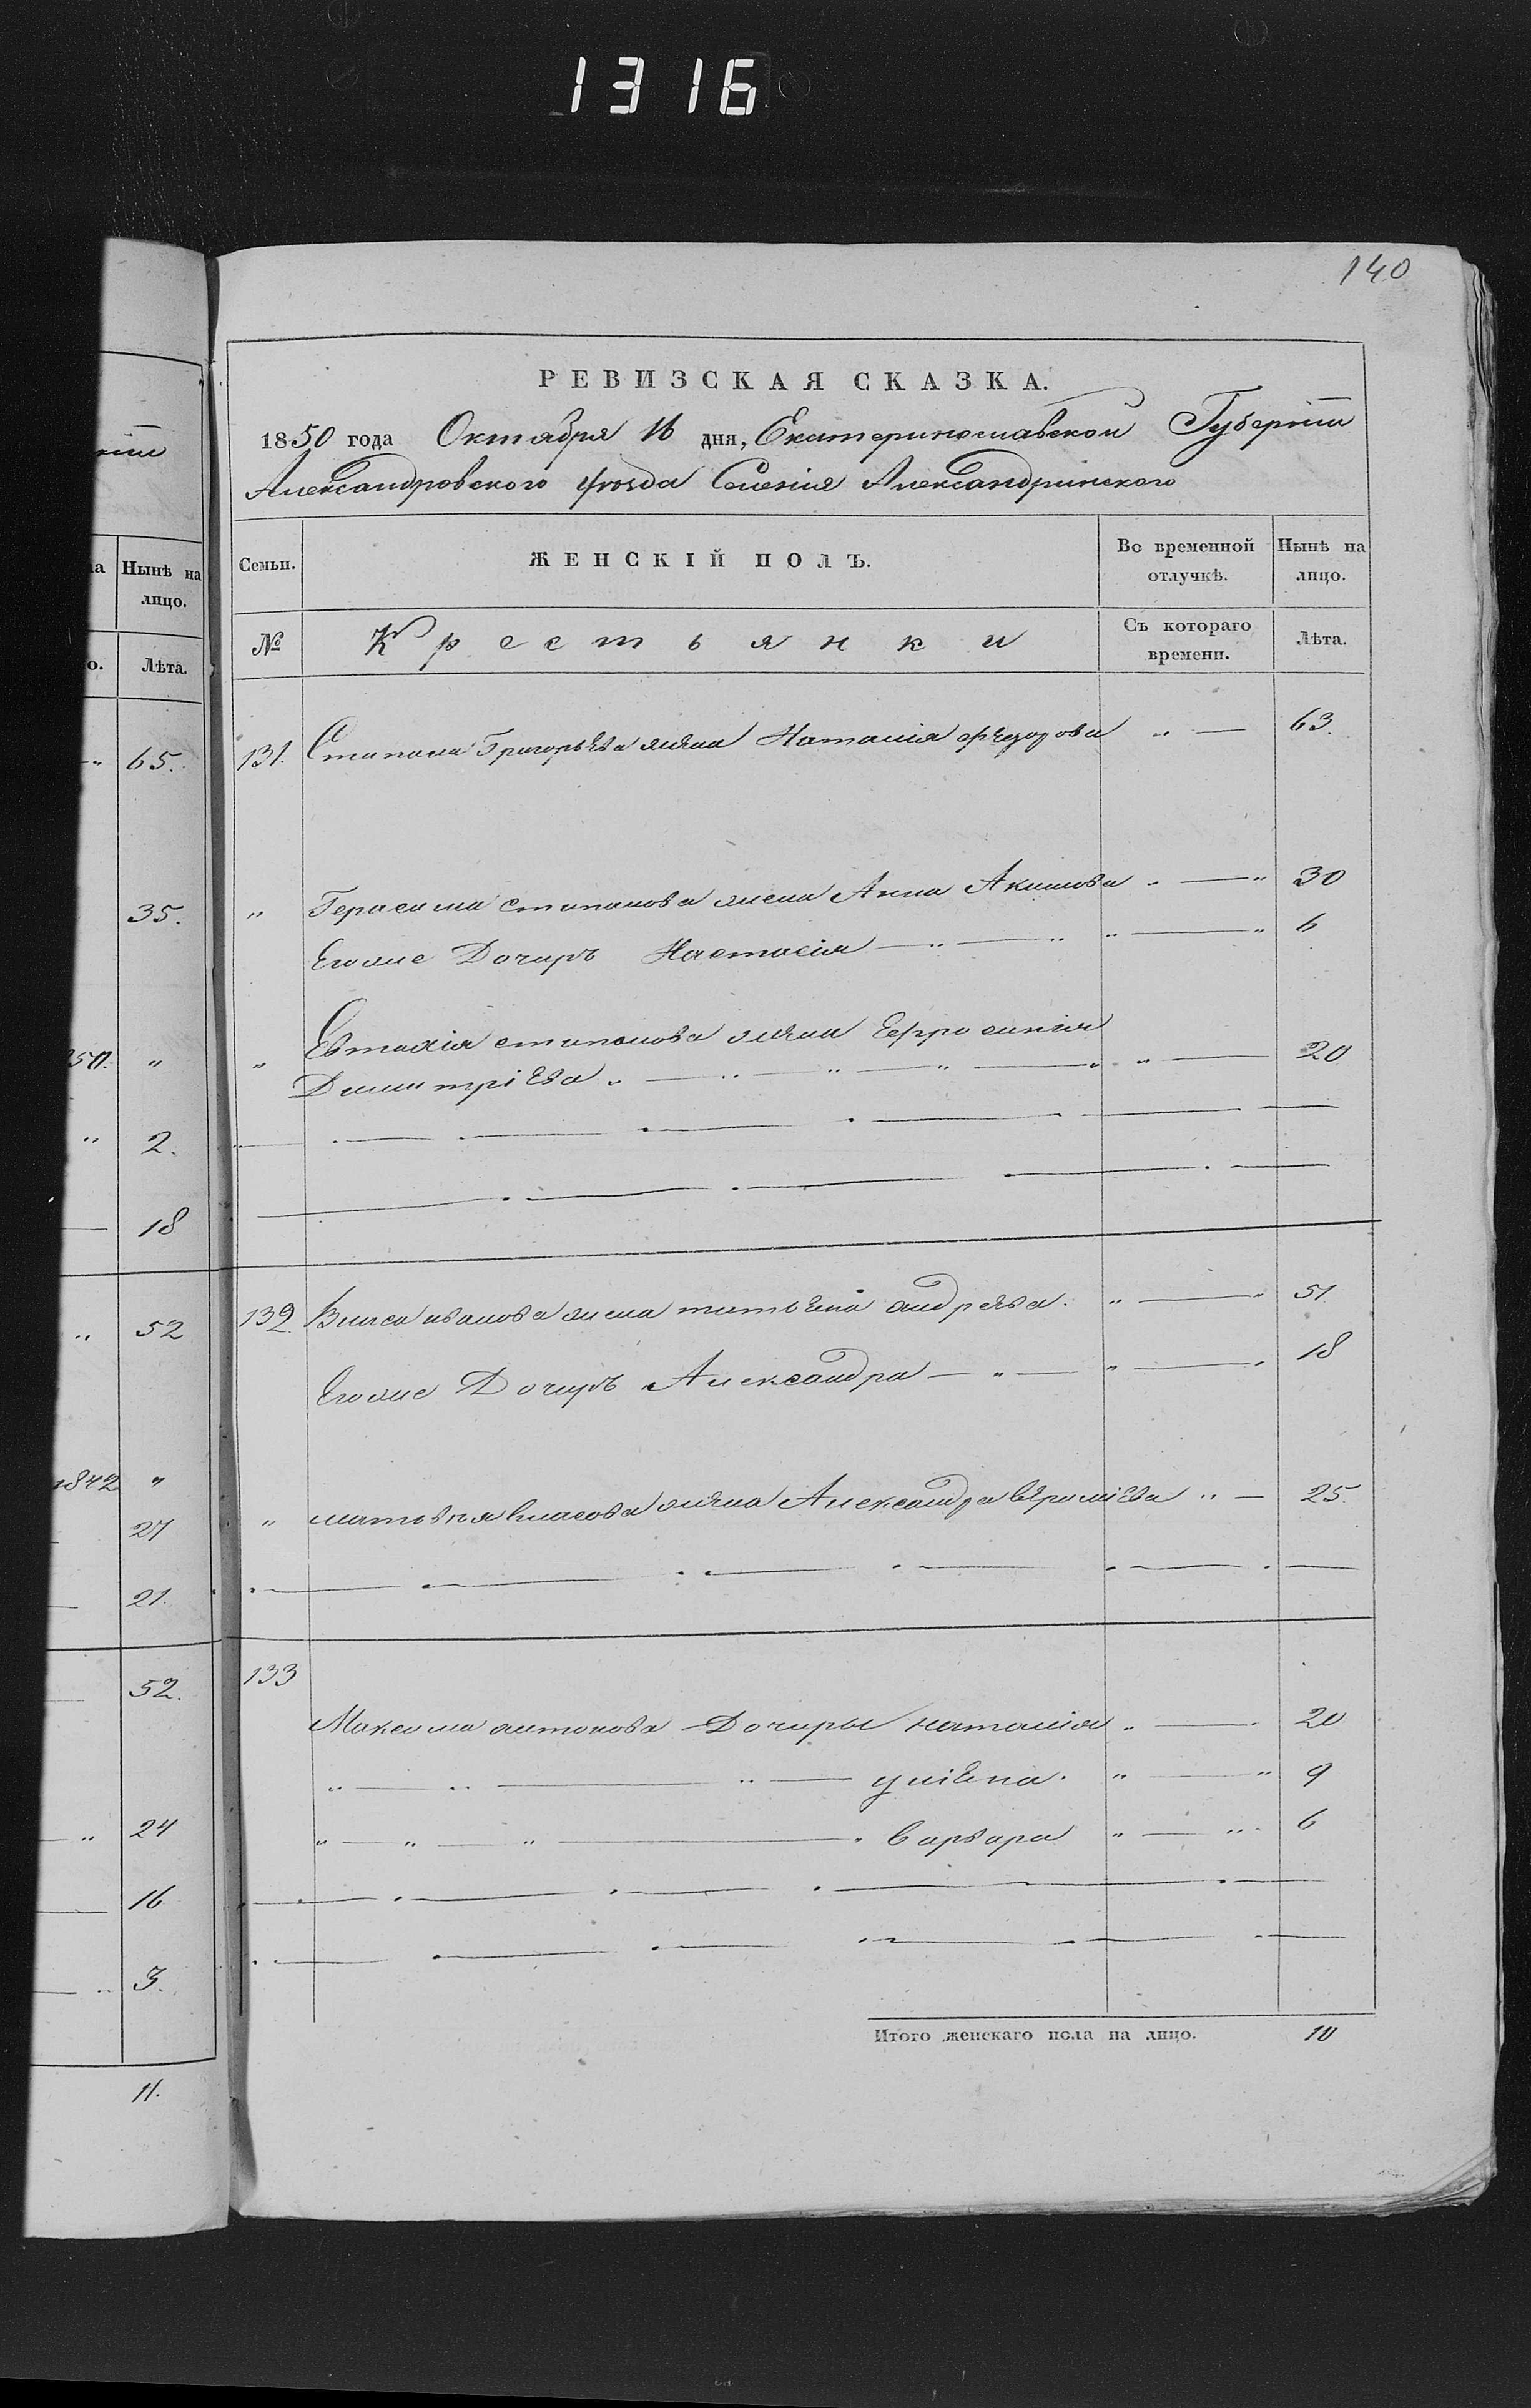 1316
140
РЕВИЗСКАЯ СКАЗКА.
1850 года Октября 16 дня, Екатеринославской Губерніи
Александровского уѣзда Селенія Александринского
Семьи. ЖЕНСКІЙ ПОЛЪ. Во временной отлучкѣ. Нынѣ на лицо.
№ Крестьянки Съ котораго времени. Лѣта.
131. Стипана Григорьева жена Наталія Федорова " — 63.
" Герасима Стипанова жена Анна Акимова " — " 30
Егоже Дочирь Настасія — " — " " — " 6
" Евтихія стипанова жена Ефросинія
Димитріева " — " — " — " — " " — 20
132. Власа иванова жена андрѣева. " — " 51
Егоже Дочирь Александра — " — " — " 18
" матвѣя власова жена Александра " — 25.
133
Максима антонова Дочиры наталія " — 20
" — " — " — уліѣна. " — " 9
" — " — " — варвара " — " 6
Итого женскаго пола на лицо. 10
ніи
на Нынѣ на лицо.
о. Лѣта.
" 65.
35.
850. "
" 2.
— 18
" 52
1842 "
27
— 21.
— 52.
— " 24
— 16
— " 3.
11.